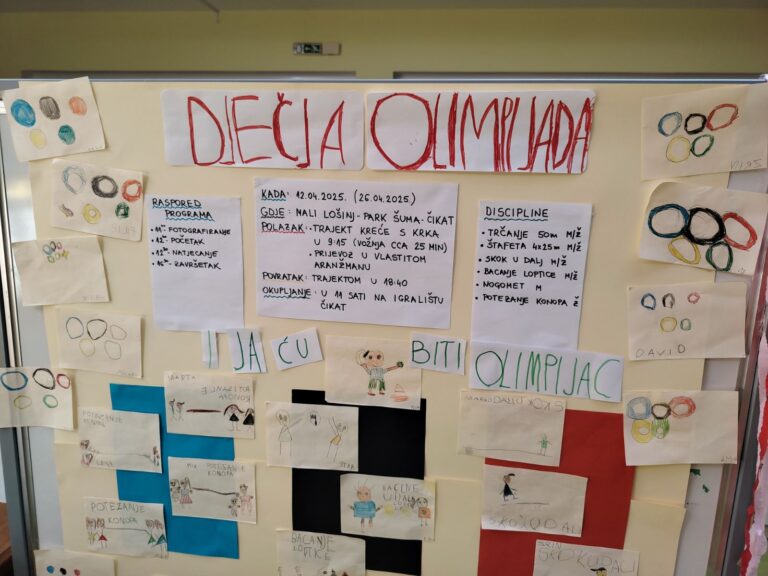 DJEČJA OLIMPIJADA
RASPORED
PROGRAMA
FOTOGRAFIRANJE
POČETAK
NATJECANJE
ZAVRŠETAK
KADA: 12.04.2025. (26.04.2025.)
GDJE: MALI LOŠINJ - PARK ŠUMA ČIKAT
POLAZAK: - TRAJEKT KREĆE S KRKA
U 9:15 (VOŽNJA CCA 25 MIN)
- PRIJEVOZ U VLASTITOM
ARANŽMANU
POVRATAK: TRAJEKTOM U 18:40
OKUPLJANJE: U 11 SATI NA IGRALIŠTU
ČIKAT
DISCIPLINE
• TRČANJE 50m M/Ž
• ŠTAFETA 4x25m M/Ž
• SKOK U DALJ M/Ž
• BACANJE LOPTICE M/Ž
• NOGOMET M
• POTEZANJE KONOPA Ž
I JA ĆU BITI OLIMPIJAC
DAVID
MARTA
KONOPA
POTEZANJE
KONOPA
POTEZANJE
KONOPA
BACANJE
LOPTICE